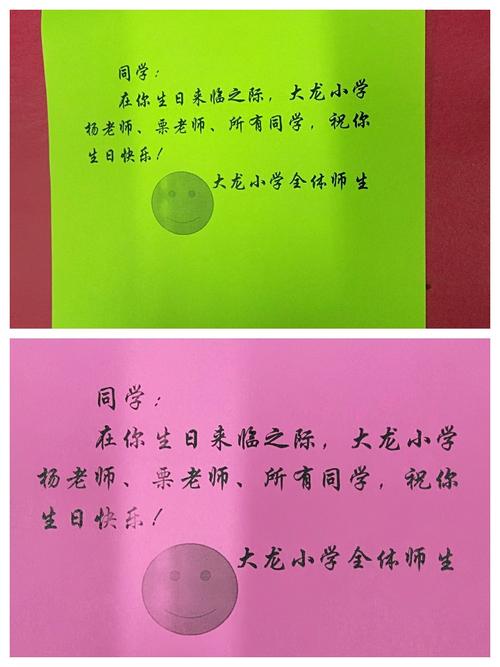 同学：
在你生日来临之际，大龙小学
杨老师、栗老师、所有同学，祝你
生日快乐！
大龙小学全体师生
同学：
在你生日来临之际，大龙小学
杨老师、栗老师、所有同学，祝你
生日快乐！
大龙小学全体师生